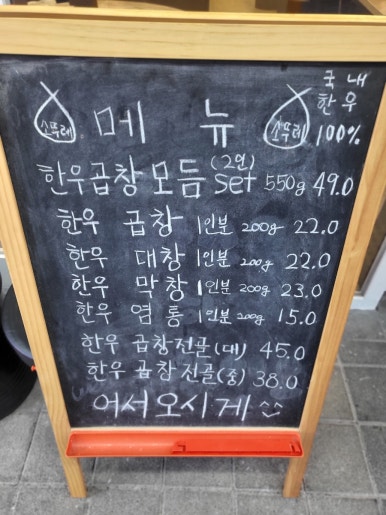 국내
한우
100%
소뚜레
메뉴
소뚜레
(2인)
한우곱창모듬 Set 550g 49.0
한우 곱창 1인분 200g 22.0
한우 대창 1인분 200g 22.0
한우 막창 1인분 200g 23.0
한우 염통 1인분 200g 15.0
한우 곱창전골(대) 45.0
한우 곱창전골(중) 38.0
어서오시게